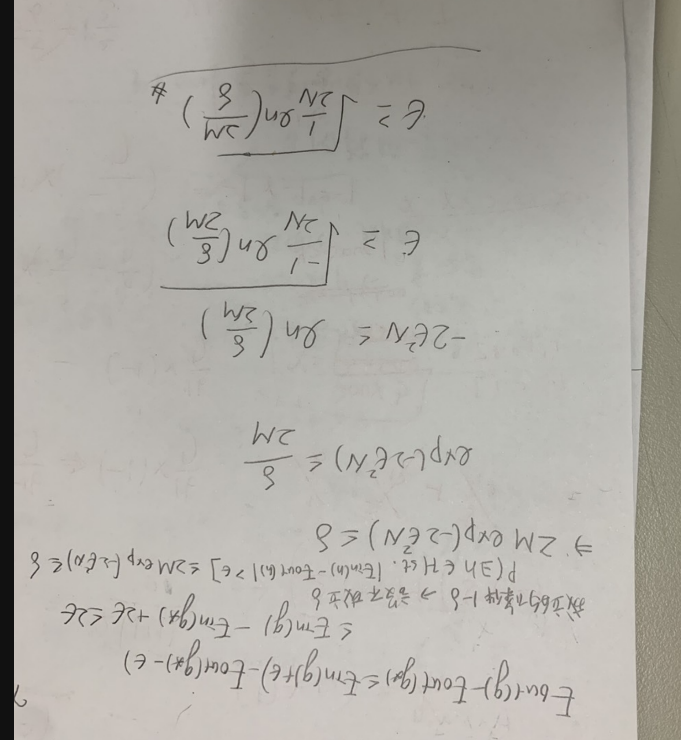 Eout(g) - Eout(g*) ≤ Ein(g)+ε) - Eout(g*) - ε)
≤ Ein(g) - Ein(g*) + 2ε ≤ 2ε
成立的機率 1-δ → 設不成立 δ
P(∃h ∈ H st. |Ein(h) - Eout(h)| > ε] ≤ 2M exp(-2ε²N) ≤ δ
⇒ 2M exp(-2ε²N) ≤ δ
exp(-2ε²N) ≤ δ/2M
-2ε²N ≤ ln(δ/2M)
ε ≥ √(-1/2N ln(δ/2M))
ε ≥ √(1/2N ln(2M/δ)) #